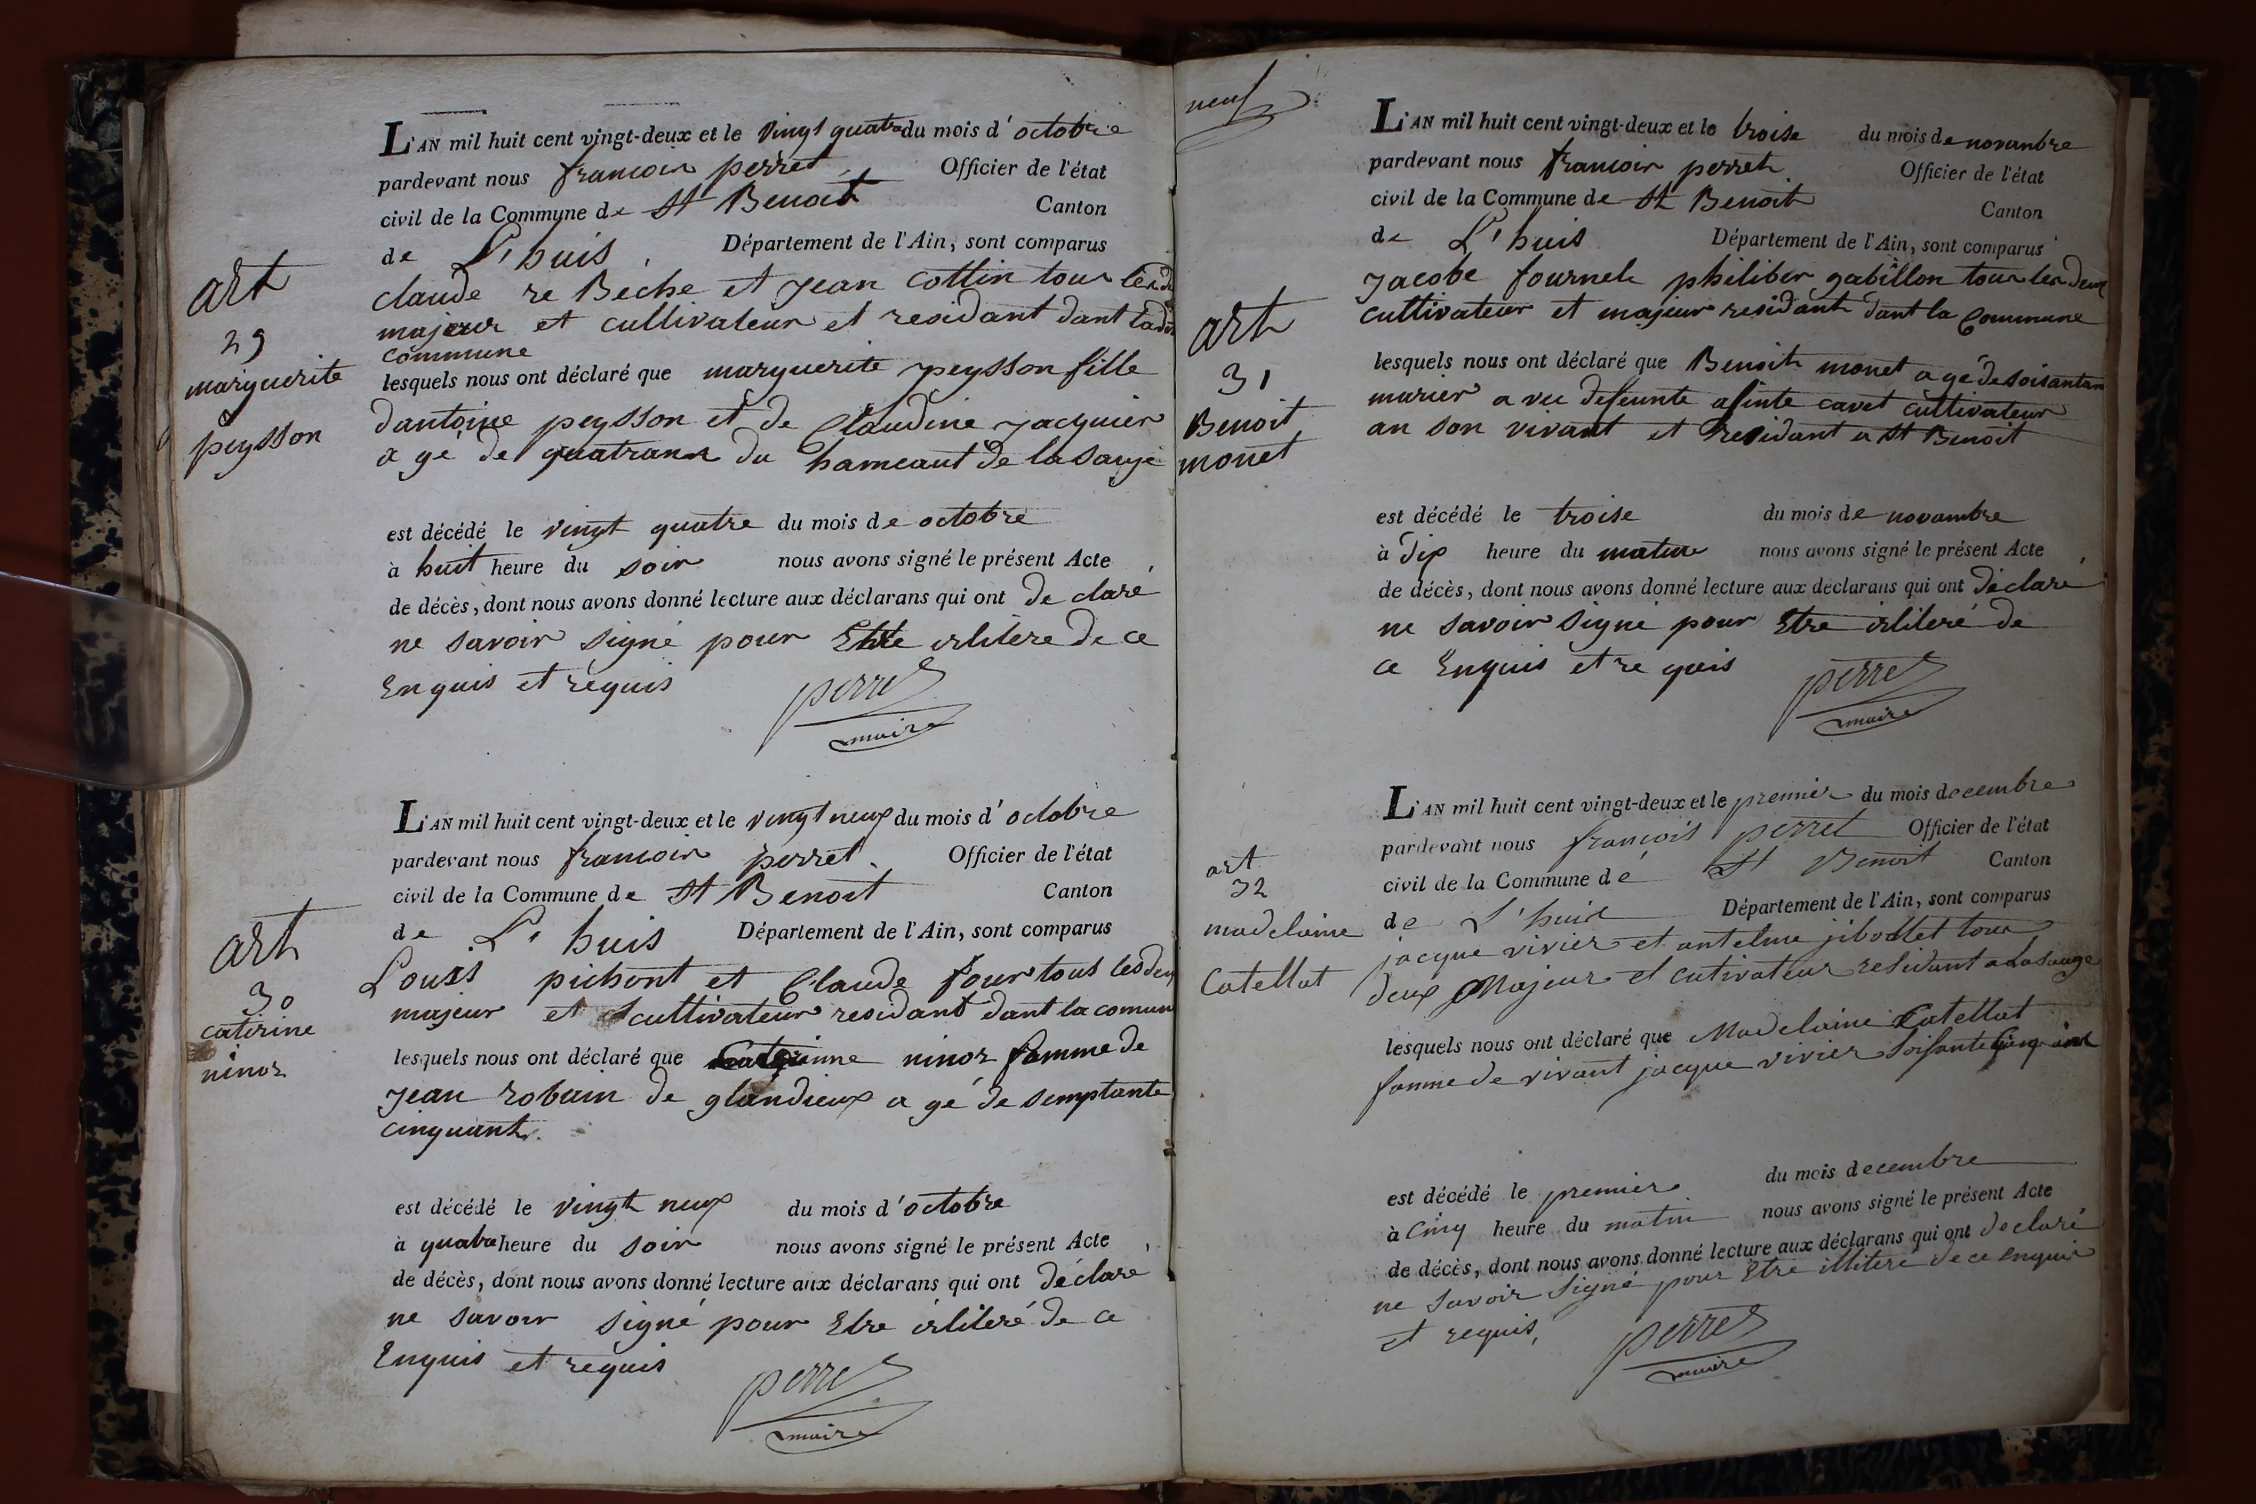 L'AN mil huit cent vingt-deux et le vingt quatre du mois d'octobre
pardevant nous francoir perret Officier de l'état
civil de la Commune de St Benoit Canton
de L'huis Département de l'Ain, sont comparus
claude re Béche et jean Cottin tous les
majeur et cultivateur et residant dant
commune
art
29
marguerite
peysson
lesquels nous ont déclaré que marguerite peysson fille
dantoine peysson et de Claudine jacquier
a gé de quatrans du hameaut de la Sauge
est décédé le vingt quatre du mois de octobre
à huit heure du soir nous avons signé le présent Acte
de décès, dont nous avons donné lecture aux déclarans qui ont de claré
ne savoir signé pour Etre irlitere de ce
Enquis et requis
perret
maire
L'AN mil huit cent vingt-deux et le vingt neuf du mois d'octobre
pardevant nous francoir perret Officier de l'état
civil de la Commune de St Benoit Canton
de L'huis Département de l'Ain, sont comparus
Louis pichont et Claude four tous les deux
majeur et cultivateur residant dant la comun
art
30
catirine
ninoz
lesquels nous ont déclaré que ninoz famme de
jean robain de glandieux a gé de semptante
cinquant
est décédé le vingt neuf du mois d'octobre
à quatre heure du soir nous avons signé le présent Acte
de décès, dont nous avons donné lecture aux déclarans qui ont déclaré
ne savoir signé pour Etre irliteré de ce
Enquis et requis
perret
maire
neuf
L'AN mil huit cent vingt-deux et le troise du mois de novambre
pardevant nous francoir perret Officier de l'état
civil de la Commune de St Benoit Canton
de L'huis Département de l'Ain, sont comparus
jacobe fournel philiber gabillon tous les deux
cultivateur et majeur residant dant la Commune
art
31
Benoit
monet
lesquels nous ont déclaré que Benoit monet a gé de soisantan
marier a vec defeunte asinte cavet cultivateur
an son vivant et residant a St Benoit
est décédé le troise du mois de novambre
à dix heure du matin nous avons signé le présent Acte
de décès, dont nous avons donné lecture aux déclarans qui ont déclaré
ne savoir signé pour Etre irliteré de
ce Enquis et re quis
perret
maire
L'AN mil huit cent vingt-deux et le premier du mois decembre
pardevant nous françois perret Officier de l'état
civil de la Commune dé St Benoit Canton
de L'huis Département de l'Ain, sont comparus
jacque vivier et antelme jibollet tous
deux Majeur et cutivateur residant a Lasauge
art
32
madelaine
Catellat
lesquels nous ont déclaré que Madelaine Catellat
famme de vivant jacque vivier soisante cinq
est décédé le premier du mois decembre
à cinq heure du matin nous avons signé le présent Acte
de décès, dont nous avons donné lecture aux déclarans qui ont declaré
ne savoir signé pour Etre illitere de ce enquis
et requis,
perret
maire